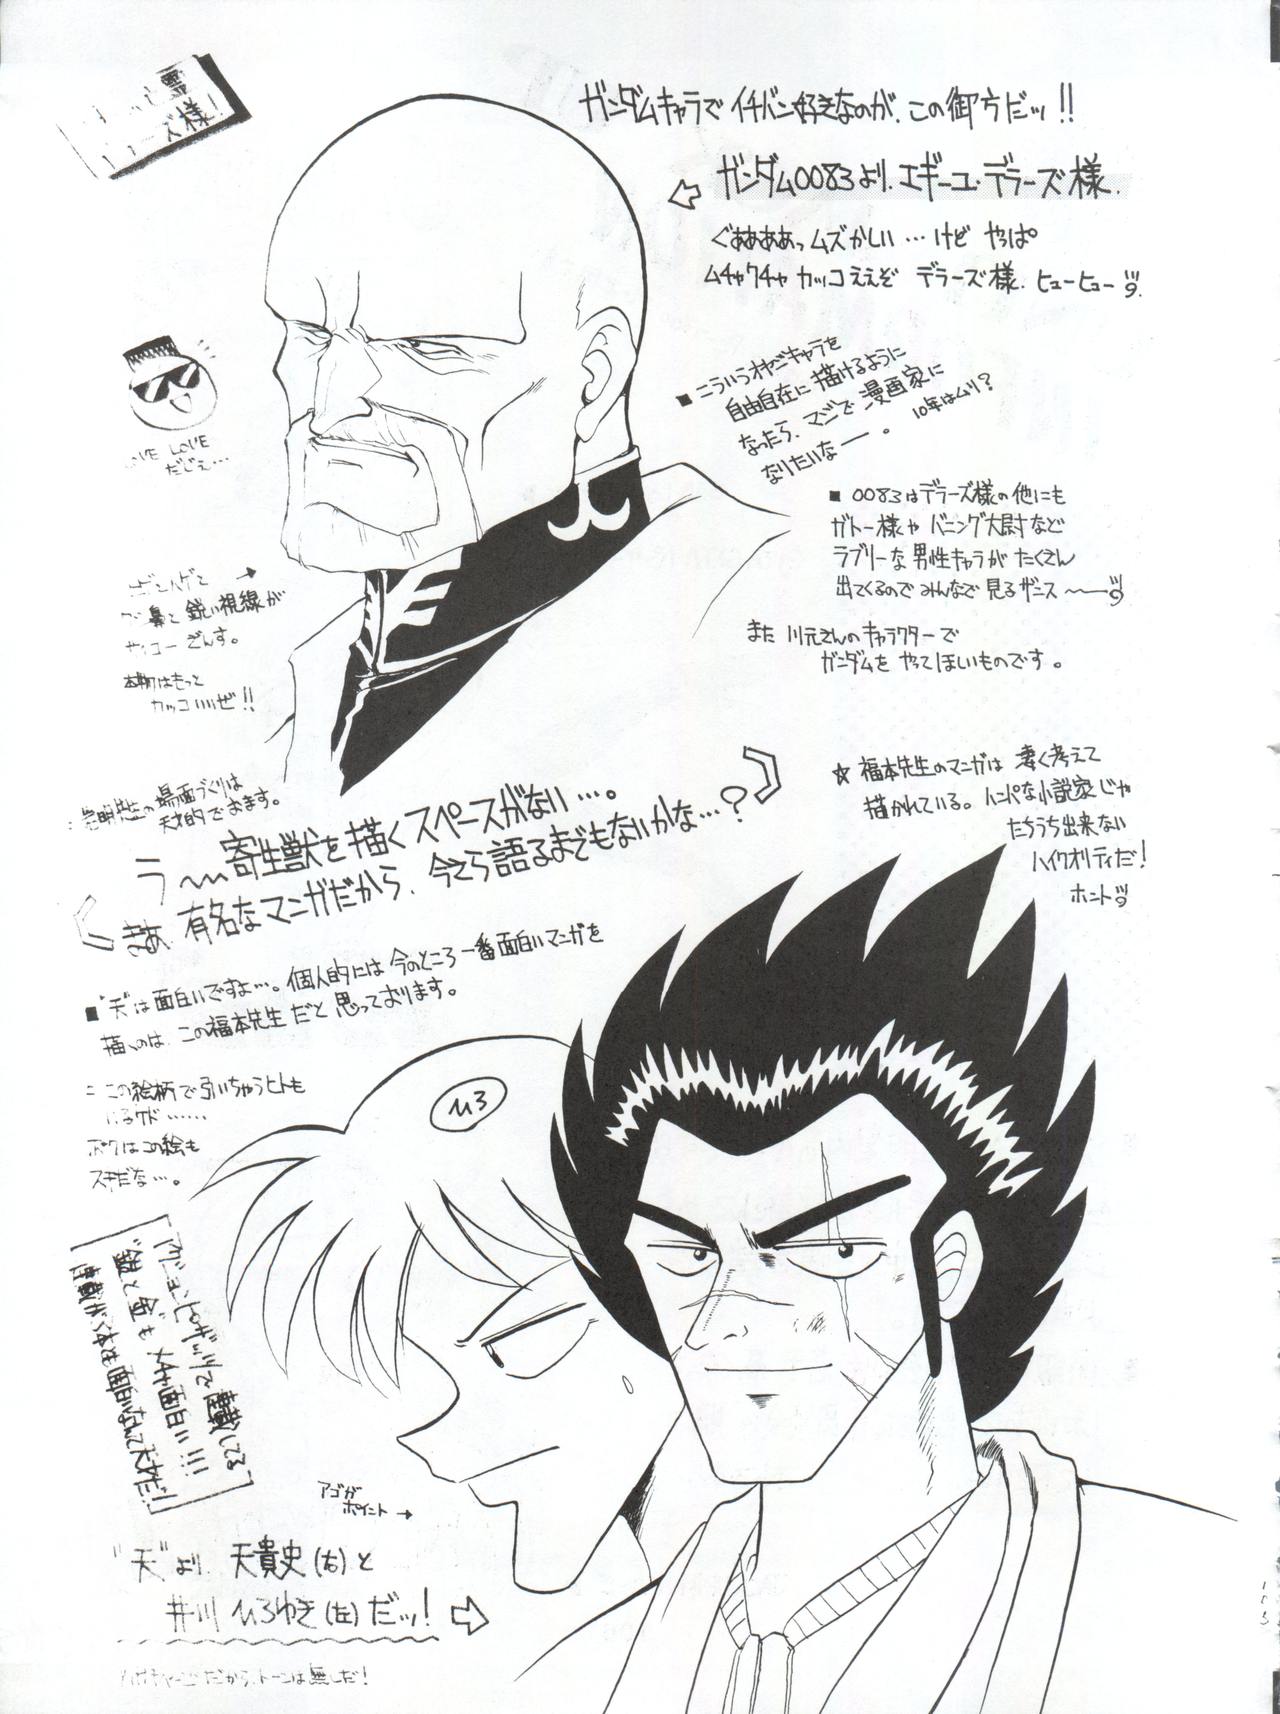 ガンダムキャラで イチバン好きなのが、この御方だッ!!
ガンダム0083より、エギーユ・デラーズ様.
ぐああああっムズかしい…けど やっぱ
ムチャクチャ カッコええぞ デラーズ様. ヒューヒュー
■こういうオヤジキャラを
自由自在に描けるように
なったら、マジで漫画家に
なりたいなー。
10年はムリ?
■0083はデラーズ様の他にも
ガトー様や バニング大尉など
ラブリーな男性キャラが たくさん
出てくるので みんなで見るザンス
また 川元さんのキャラクターで
ガンダムを やってほしいものです。
LOVE
だじぇ…
鼻と 鋭い視線が
サイコー ざんす。
本物はもっと
カッコいいぜ!!
☆福本先生のマンガは 凄く考えて
描かれている。ハンパな小説家じゃ
たちうち出来ない
ハイクオリティだ!
ホント
の場面づくりは
天才的で おます。
う〜寄生獣を描くスペースがない…。
まあ 有名なマンガだから、今さら語るまでもないかな…?
■"天"は面白いですよ…。個人的には 今のところ 一番面白いマンガを
描くのは、この福本先生だと 思っております。
この絵柄で引いちゃうヒトも
いるケド……
ボクはこの絵も
スキだな…。
ひろ
アクションピザッツで 連載してる
"銀と金"も メチャ面白い!!!
アゴが
ポイント→
"天"より、天貴史(右)と
井川 ひろゆき(左)だッ!
だから、トーンは無しだ!